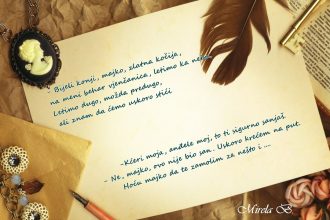 - Bijeli konji, majko, zlatna kočija,
na meni behar vjenčanica, letimo ka nebu.
Letimo dugo, možda predugo,
ali znam da ćemo uskoro stići
-Kćeri moja, anđele moj, to ti sigurno sanjaš.
- Ne, majko, ovo nije bio san.. Uskoro krećem na put.
Hoću majko da te zamolim za nešto i ....
Mirela B.